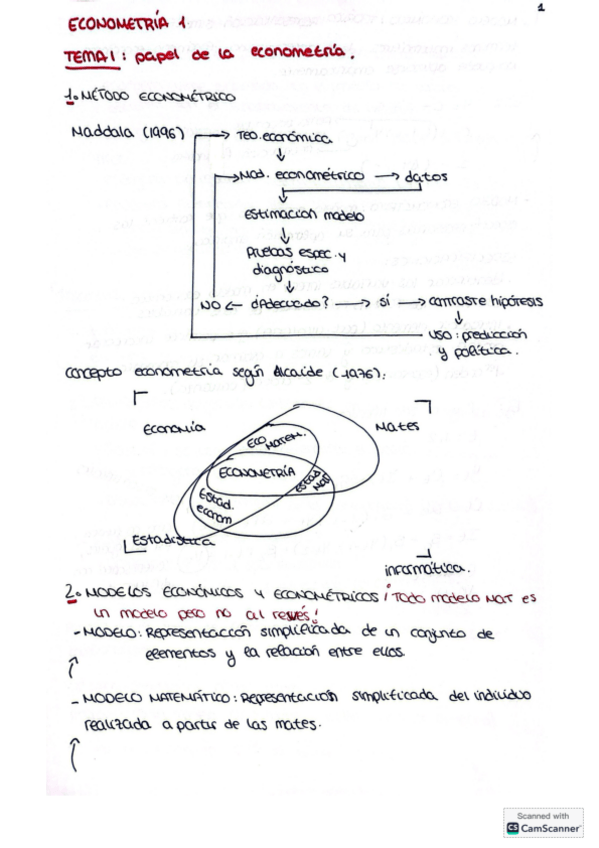 1
ECONOMETRÍA 1
TEMA 1: papel de la econometría.
1. MÉTODO ECONOMÉTRICO
Maddala (1996) → Teo. económica
Mod. econométrico → datos
estimacion modelo
Pruebas espec. y
diagnóstico
NO ← ¿adecuado? → sí → contraste hipótesis
uso: predicción
y política.
concepto econometría según Alcaide (1976):
Economía
Mates
ECO MATEM.
ECONOMETRÍA
Estad. Mat
Estad.
econom
Estadística
informática.
2. MODELOS ECONÓMICOS Y ECONOMÉTRICOS ¡Todo modelo MAT es
un modelo pero no al revés!
- MODELO: Representacción simplificada de un conjunto de
elementos y la relación entre ellos.
- MODELO MATEMÁTICO: Representación simplificada del individuo
realizada a partir de las mates.
Scanned with
CS CamScanner